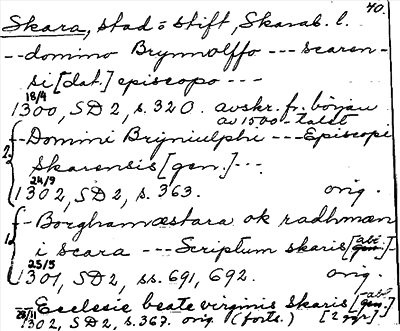 40.
Skara, stad o stift, Skarab. l.
-- domino Brynnolffo --- scaren-
si [dat.] episcopo ---
18/4
1300, SD 2, s. 320. avskr. fr. början
av 1500-talet
2. -- Domini Bryniulphi --- Episcopi
Skarensis [gen.] ---
24/9
1302, SD 2, s. 363. orig.
1. -- Borghamæstara ok radhmæn
i scara --- Scriptum skaris [abl.] -
25/5
1301, SD 2, ss. 691, 692. orig.
-- Ecclesie beate virginis skaris [abl.]
28/11
1302, SD 2, s. 367. orig. (forts.) [2 ggr]